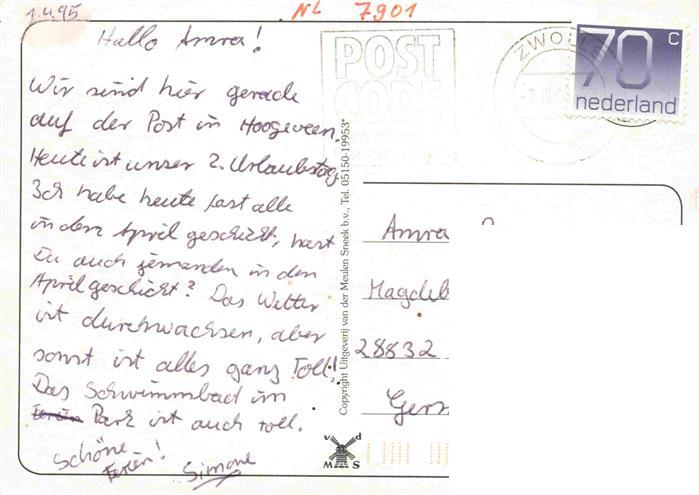 1.4.95
NL 7901
Hallo Amra!
Wir sind hier gerade
auf der Post in Hoogeveen.
Heute ist unser 2. Urlaubstag.
Ich habe heute fast alle
in den April geschickt, hast
Du auch jemanden in den
April geschickt? Das Wetter
ist durchwachsen, aber
sonst ist alles ganz Toll!
Das Schwimmbad im
Park ist auch toll.
Schöne
Ferien!
Simone
POST
CODE
ZWOLLE
70 c
nederland
Copyright Uitgeverij van der Meulen Sneek b.v., Tel. 05150-19953*
v d
M S
Amra
Magdeb
28832
Ger